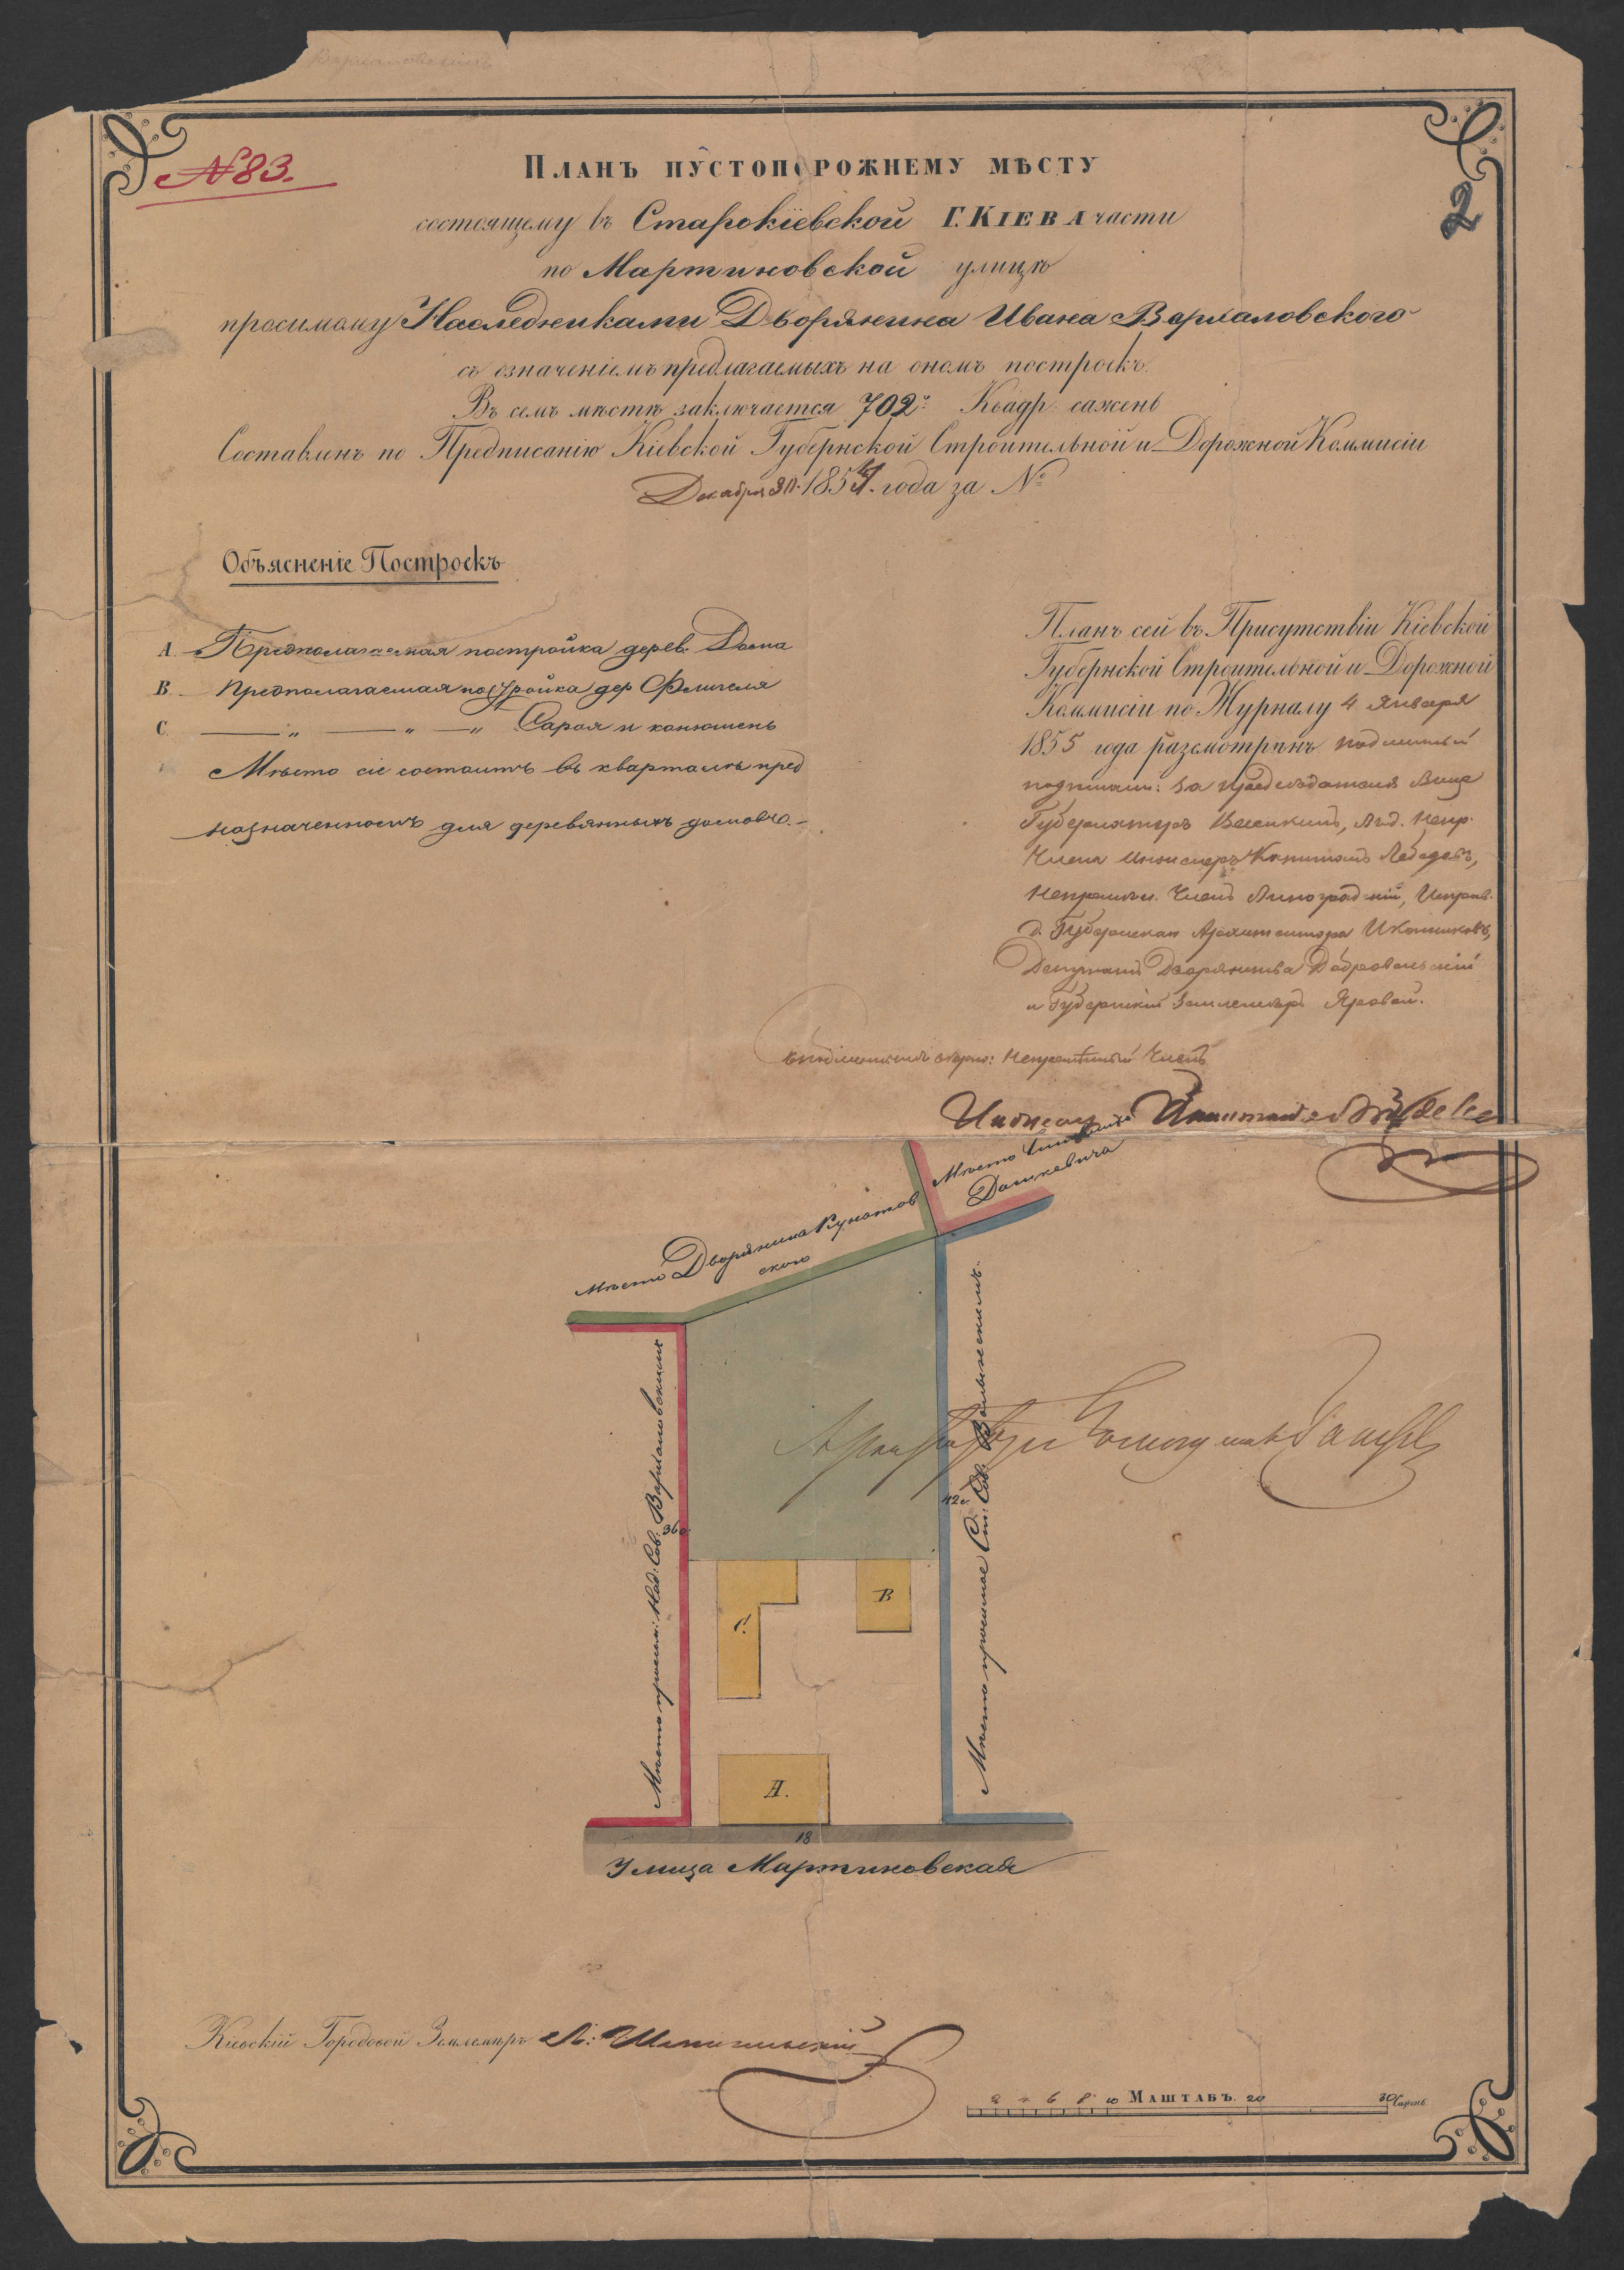 № 83.
2
Планъ пустопорожнему мѣсту
состоящему въ Старокіевской Г. Кіева части
по Мартиновской улицѣ
просимому Наследниками Дворянина Ивана Варламовского
съ означеніемъ предлагаемыхъ на ономъ построекъ.
Въ семъ мѣстѣ заключается 702 Квадр. сажень
Составленъ по Предписанію Кіевской Губернской Строительной и Дорожной Коммисіи
Декабря 30. 1854. года за №
Объясненіе Построекъ
A. Предполагаемая постройка дерев. Дома
B. Предполагаемая постройка дер Флигеля
C. — " — " — " Сарая и конюшень
Мѣсто сіе состоитъ въ кварталѣ пред
назначенномъ для деревянныхъ домовъ.
Планъ сей въ Присутствіи Кіевской
Губернской Строительной и Дорожной
Коммисіи по Журналу 4 Января
1855 года разсмотренъ подлинный
подписали: за Председателя Вице
Губернаторъ Веселкинъ, Непр.
Члена Инженеръ Капитанъ Лебедевъ,
Непремѣн. Членъ Виноградскій, Исправ.
д. Губернскаго Архитектора Иконниковъ,
Депутатъ Дворянства Добровольскій
и Губернскій Землемѣръ Яровой.
съ подлиннымъ верно: Непремѣнный Членъ
Инженеръ Капитанъ Лебедевъ
Мѣсто
Дашкевича
Мѣсто Дворянина Кунатов
ского
Мѣсто просим. Над. Сов. Варламовскимъ
36 с.
Мѣсто просимое Ст. Сов.
42 с.
C.
B
A.
18
Улица Мартиновская
Кіевскій Городовой Землемѣръ
2 4 6 8 10 Маштабъ. 20 30 Сажень